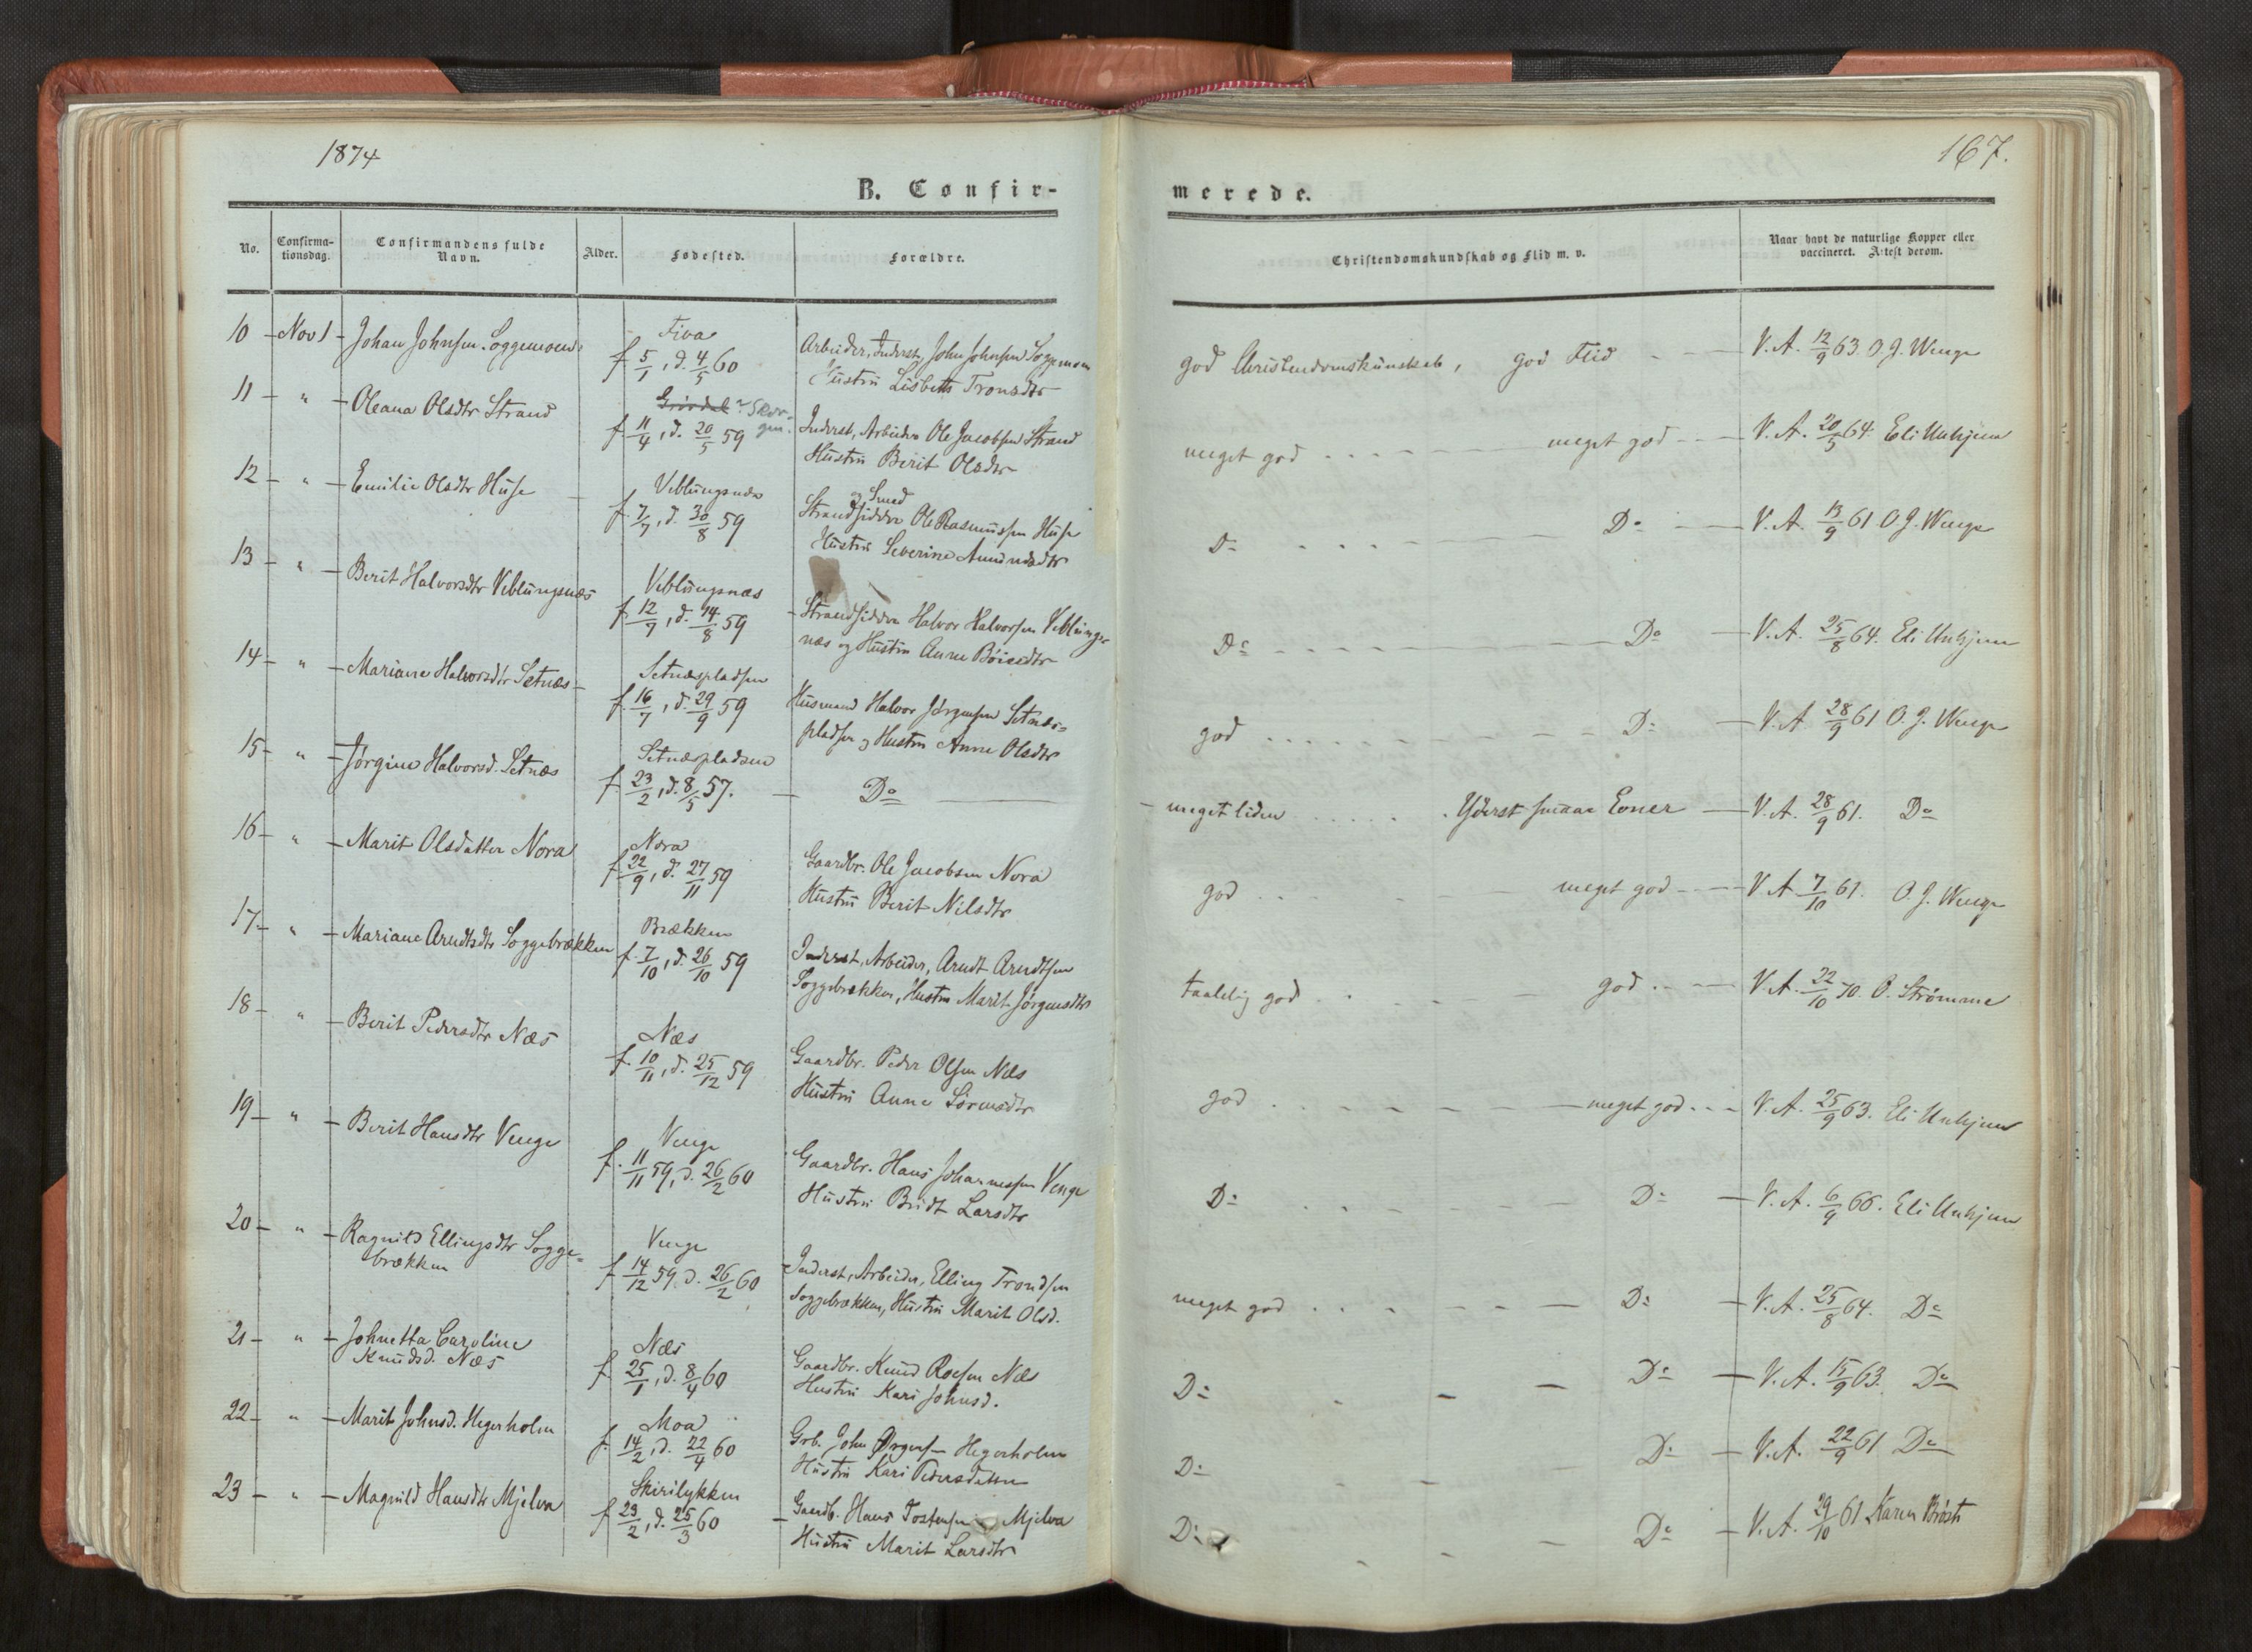 1874
167.
B. Confir-
merede.
No.
Confirma-
tionsdag.
Confirmandens fulde
Navn.
Alder.
Fødested.
Forældre.
Christendomskundskab og Flid m. v.
Naar havt de naturlige Kopper eller
vaccineret. Attest derom.
10 - Nov 1 - Johan Johnsen Soggemoen
Fiva
f. 5/1, d. 4/5 60
Arbeider, Inderst, John Johnsen Soggemoen
Hustru Lisbeth Tronsdtr
god Christendomskundskab, god Flid - V. A. 12/9 63 O. J. Wenge
11 - " - Oleana Olsdtr Strand
Skor-
gen.
f. 11/4, d. 20/5 59
Inderst, Arbeider Ole Jacobsen Strand
Hustru Berit Olsdtr
meget god - meget god - V. A. 20/5 64. Eli Unhjem
12 - " - Emilie Olsdtr Huse
Veblungsnæs
f. 7/7, d. 30/8 59
og Smed
Strandsidder Ole Rasmussen Huse
Hustru Severine Amundsdtr
Do - Do - V. A. 13/9 61 O. J. Wenge
13 - " - Berit Halvorsdtr Veblungsnæs
Veblungsnæs
f. 12/7, d. 14/8 59
Strandsidder Halvor Halvorsen Veblungs-
næs og Hustru Anne
Do - Do - V. A. 25/8 64. Eli Unhjem
14 - " - Mariane Halvorsdtr Setnæs
Setnæspladsen
f. 16/7, d. 29/9 59
Husmand Halvor Jørgensen Setnæs-
pladsen og Hustru Anne Olsdtr
god - Do - V. A. 28/9 61 O. J. Wenge
15 - " - Jørgine Halvorsd. Setnæs
Setnæspladsen
f. 23/2, d. 8/5 57.
Do
meget liden - Yderst smaae Evner - V. A. 28/9 61. Do
16 - " - Marit Olsdatter Nora
Nora
f. 22/9, d. 27/11 59
Gaardbr. Ole Jacobsen Nora
Hustru Berit Nilsdtr
god - meget god - V. A. 7/10 61. O. J. Wenge
17 - " - Mariane Arndtsdtr Soggebrækken
Brækken
f. 7/10, d. 26/10 59
Inderst, Arbeider, Arndt Arndtsen
Soggebrækken, Hustru Marit Jørgensdtr
taalelig god - god - V. A. 22/10 70. O. Strømme
18 - " - Berit Pedersdtr Næs
Næs
f. 10/11, d. 25/12 59
Gaardbr. Peder Olsen Næs
Hustru Anne
god - meget god - V. A. 25/9 63. Eli Unhjem
19 - " - Berit Hansdtr Venge
Venge
f. 11/11 59, d. 26/2 60
Gaardbr. Hans Johannessen Venge
Hustru Larsdtr
Do - Do - V. A. 6/9 66. Eli Unhjem
20 - " - Ragnild Ellingsdtr Sogge-
brækken
Venge
f. 14/12 59 d. 26/2 60
Inderst, Arbeider, Elling Trondsen
Soggebrækken, Hustru Marit Olsd.
meget god - Do - V. A. 25/8 64. Do
21 - " - Johnetta Caroline
Knudsd. Næs
Næs
f. 25/1, d. 8/4 60
Gaardbr. Knud Roesen Næs
Hustru Kari Johnsd.
Do - Do - V. A. 15/9 63. Do
22 - " - Marit Johnsd. Hegerholm
Moa
f. 14/2, d. 22/4 60
Grb. John Hegerholm
Hustru Kari Pedersdatter
Do - Do - V. A. 22/9 61 Do
23 - " - Magnild Hansdtr Mjelva
Skirilykken
f. 23/2, d. 25/3 60
Gaardb. Hans Tostensen Mjelva
Hustru Marit Larsdtr
Do - Do - V. A. 29/10 61 Karen Brøste